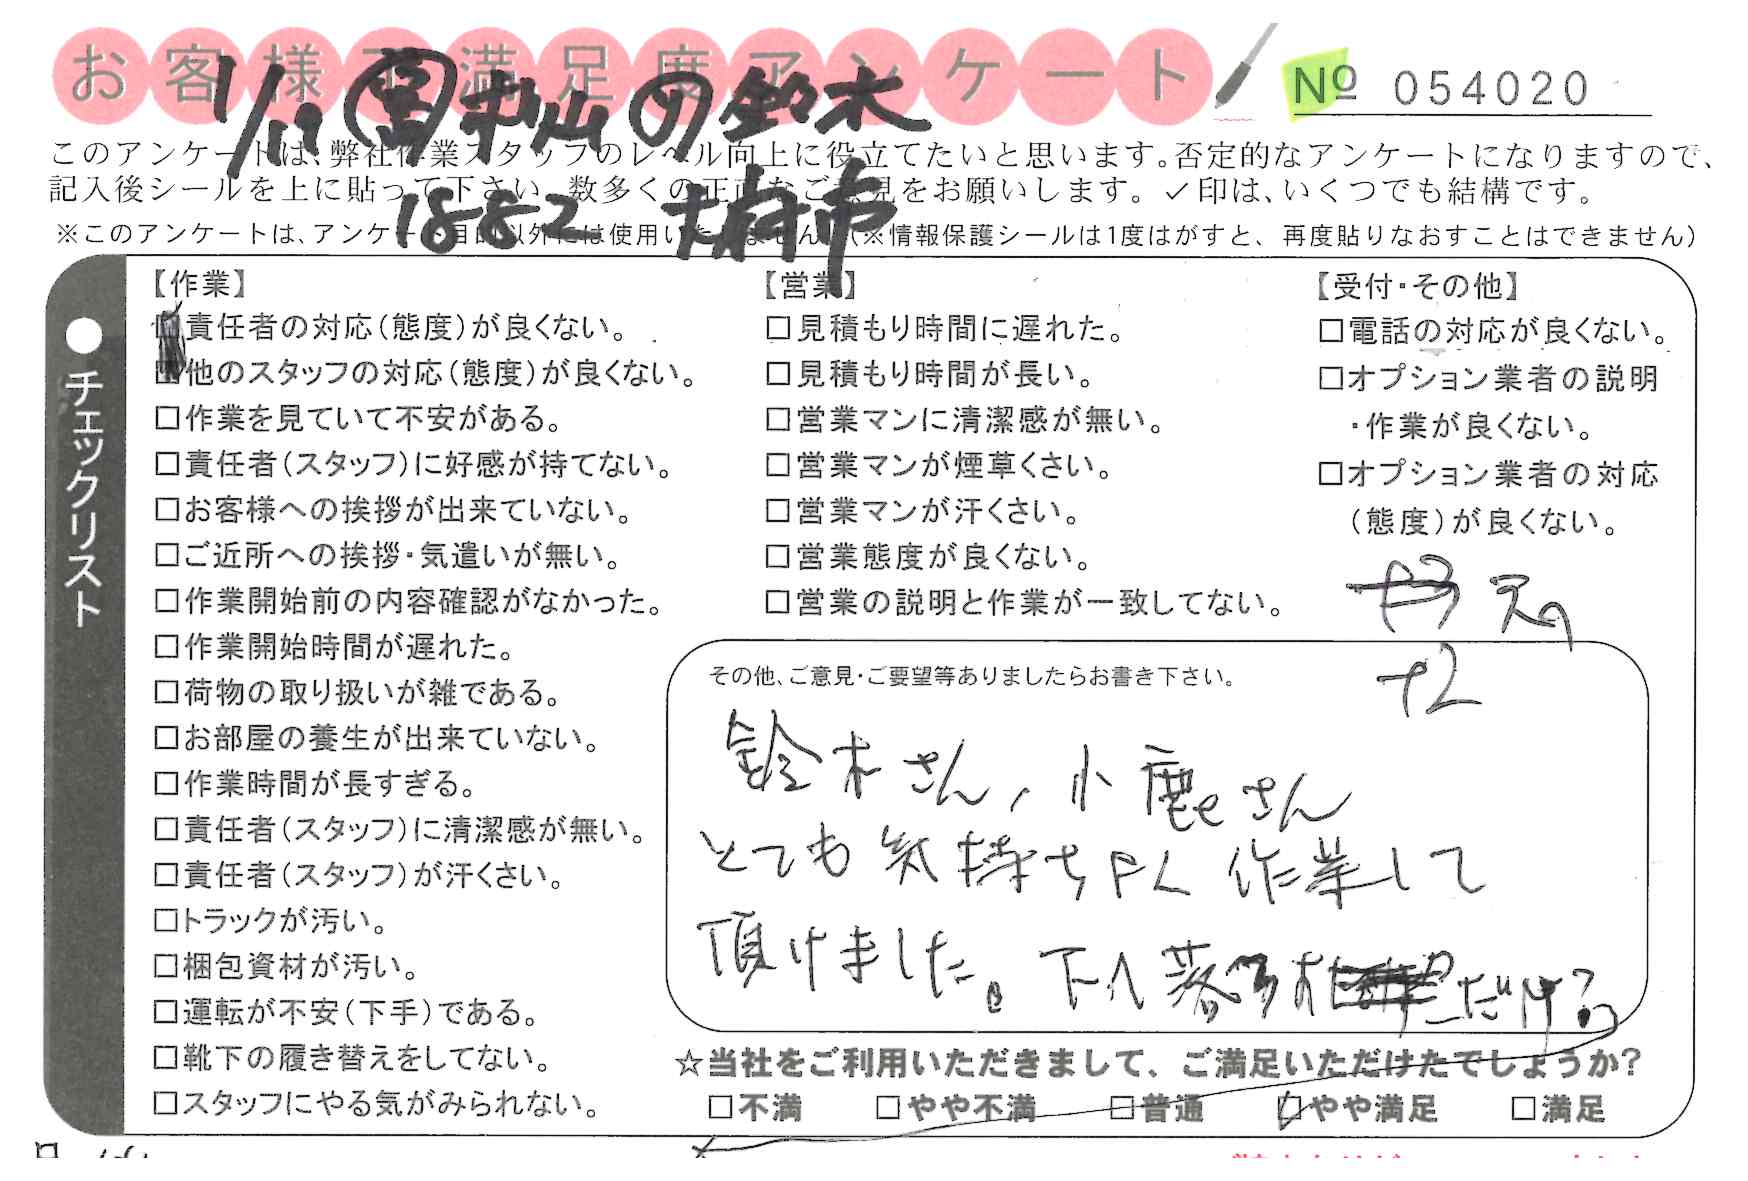 お客様ご満足度アンケート
№ 054020
1/19 東山の鈴木
1882 大府市
このアンケートは、弊社作業スタッフのレベル向上に役立てたいと思います。否定的なアンケートになりますので、
記入後シールを上に貼って下さい。数多くの正直なご意見をお願いします。✓印は、いくつでも結構です。
※このアンケートは、アンケート目的以外には使用いたしません。(※情報保護シールは1度はがすと、再度貼りなおすことはできません)
●チェックリスト
【作業】
□責任者の対応(態度)が良くない。
□他のスタッフの対応(態度)が良くない。
□作業を見ていて不安がある。
□責任者(スタッフ)に好感が持てない。
□お客様への挨拶が出来ていない。
□ご近所への挨拶・気遣いが無い。
□作業開始前の内容確認がなかった。
□作業開始時間が遅れた。
□荷物の取り扱いが雑である。
□お部屋の養生が出来ていない。
□作業時間が長すぎる。
□責任者(スタッフ)に清潔感が無い。
□責任者(スタッフ)が汗くさい。
□トラックが汚い。
□梱包資材が汚い。
□運転が不安(下手)である。
□靴下の履き替えをしてない。
□スタッフにやる気がみられない。
【営業】
□見積もり時間に遅れた。
□見積もり時間が長い。
□営業マンに清潔感が無い。
□営業マンが煙草くさい。
□営業マンが汗くさい。
□営業態度が良くない。
□営業の説明と作業が一致してない。
【受付・その他】
□電話の対応が良くない。
□オプション業者の説明
・作業が良くない。
□オプション業者の対応
(態度)が良くない。
+2
その他、ご意見・ご要望等ありましたらお書き下さい。
鈴木さん、小鹿さん
とても気持ちよく作業して
頂けました。
だけ?
☆当社をご利用いただきまして、ご満足いただけたでしょうか?
□不満 □やや不満 □普通 ☑やや満足 □満足